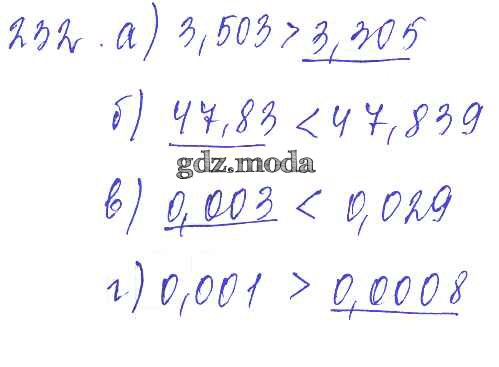 232. а) 3,503 > 3,305
б) 47,83 < 47,839
gdz.moda
в) 0,003 < 0,029
г) 0,001 > 0,0008